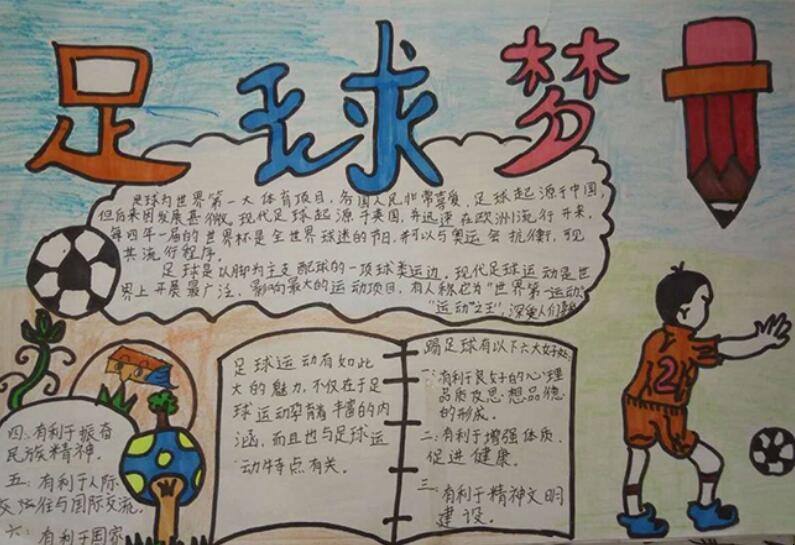 足球梦
足球为世界第一大体育项目，各国人民非常喜爱，足球起源于中国，
但后来因发展甚微。现代足球起源于英国，并迅速在欧洲流行开来，
每四年一届的世界杯是全世界球迷的节日，并可以与奥运会抗衡，可见
其流行程序。
足球是以脚为主支配球的一项球类运边，现代足球运动是世
界上开展最广泛、影响最大的运动项目，有人称它为"世界第一运动"
"运动"之王"，深受人们喜
足球运动有如此
大的魅力，不仅在于足
球运动孕育着丰富的内
涵，而且也与足球运
动特点有关。
踢足球有以下六大好处：
一：有利于良好的心理
品质及思想品德
的形成。
二：有利于增强体质，
促进健康。
三：有利于精神文明
建设。
四：有利于振奋
民族精神。
五：有利于人际
交流往与国际交流。
六：有利于国家
2